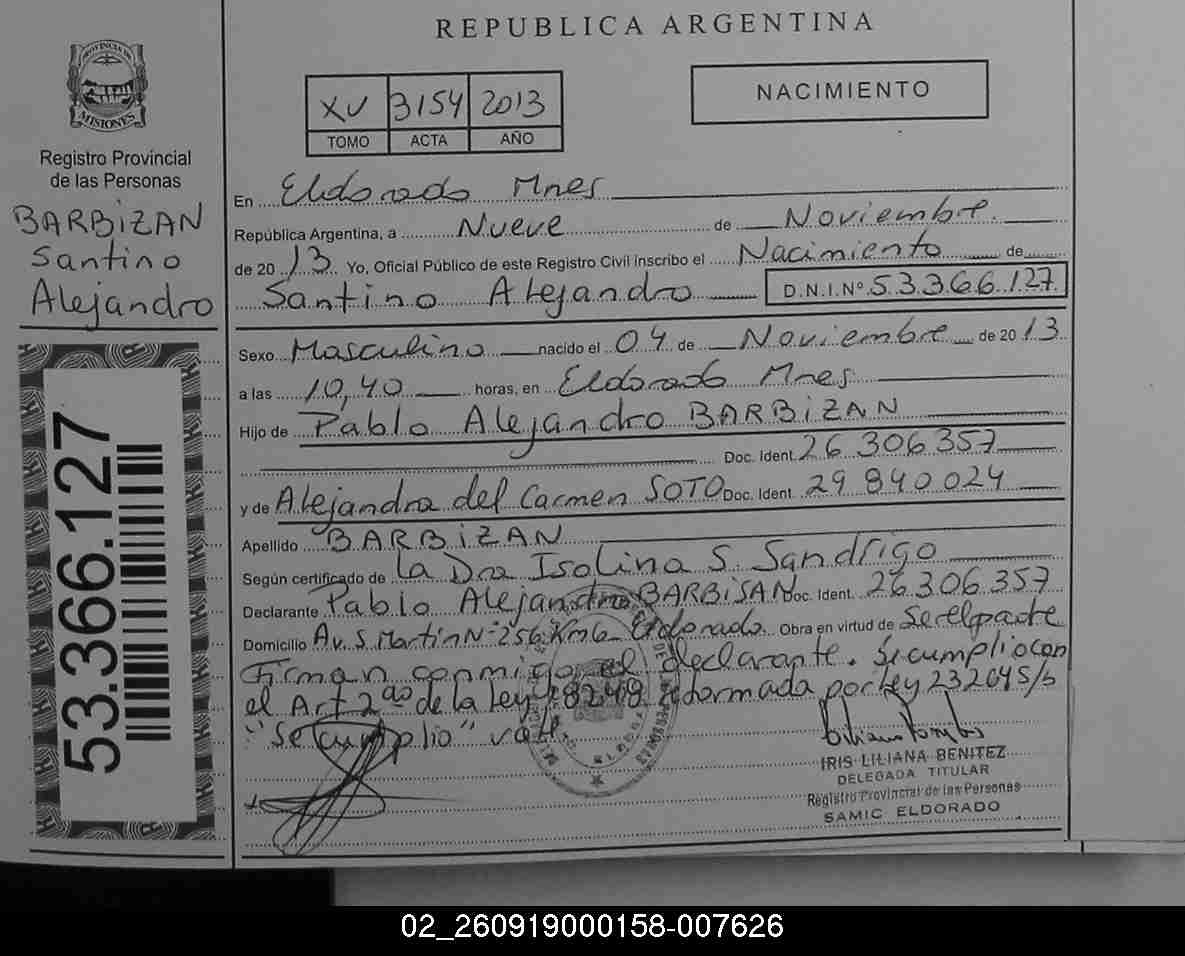 REPUBLICA ARGENTINA
PROVINCIA DE
MISIONES
Registro Provincial
de las Personas
BARBiZAN
Santino
Alejandro
53.366.127
XV 3154 2013
TOMO ACTA AÑO
NACIMIENTO
En Eldorado Mnes
República Argentina, a Nueve de Noviembre.
de 20 13 Yo, Oficial Público de este Registro Civil inscribo el Nacimiento de
Santino Alejandro D.N.I.Nº 53.366.127
Sexo Masculino nacido el 04 de Noviembre de 20 13
a las 10,40 horas, en Eldorado Mnes
Hijo de Pablo Alejandro BARBiZAN
Doc. Ident. 26 306 357
y de Alejandra del Carmen SOTO Doc. Ident. 29 840 024
Apellido BARBiZAN
Según certificado de la Dra Isolina S. Sandrigo
Declarante Pablo Alejandro BARBiSAN Doc. Ident. 26 306 357
Domicilio Av. S. Martin Nº 256 Km6 Eldorado Obra en virtud de Ser el padre
Firman conmigo el declarante. Si cumplio con
el Art 2do de la Ley 18248 reformada por ley 23264 S/b
"Se cumplio" vale.
IRIS LILIANA BENITEZ
DELEGADA TITULAR
Registro Provincial de las Personas
SAMIC ELDORADO
02_260919000158-007626